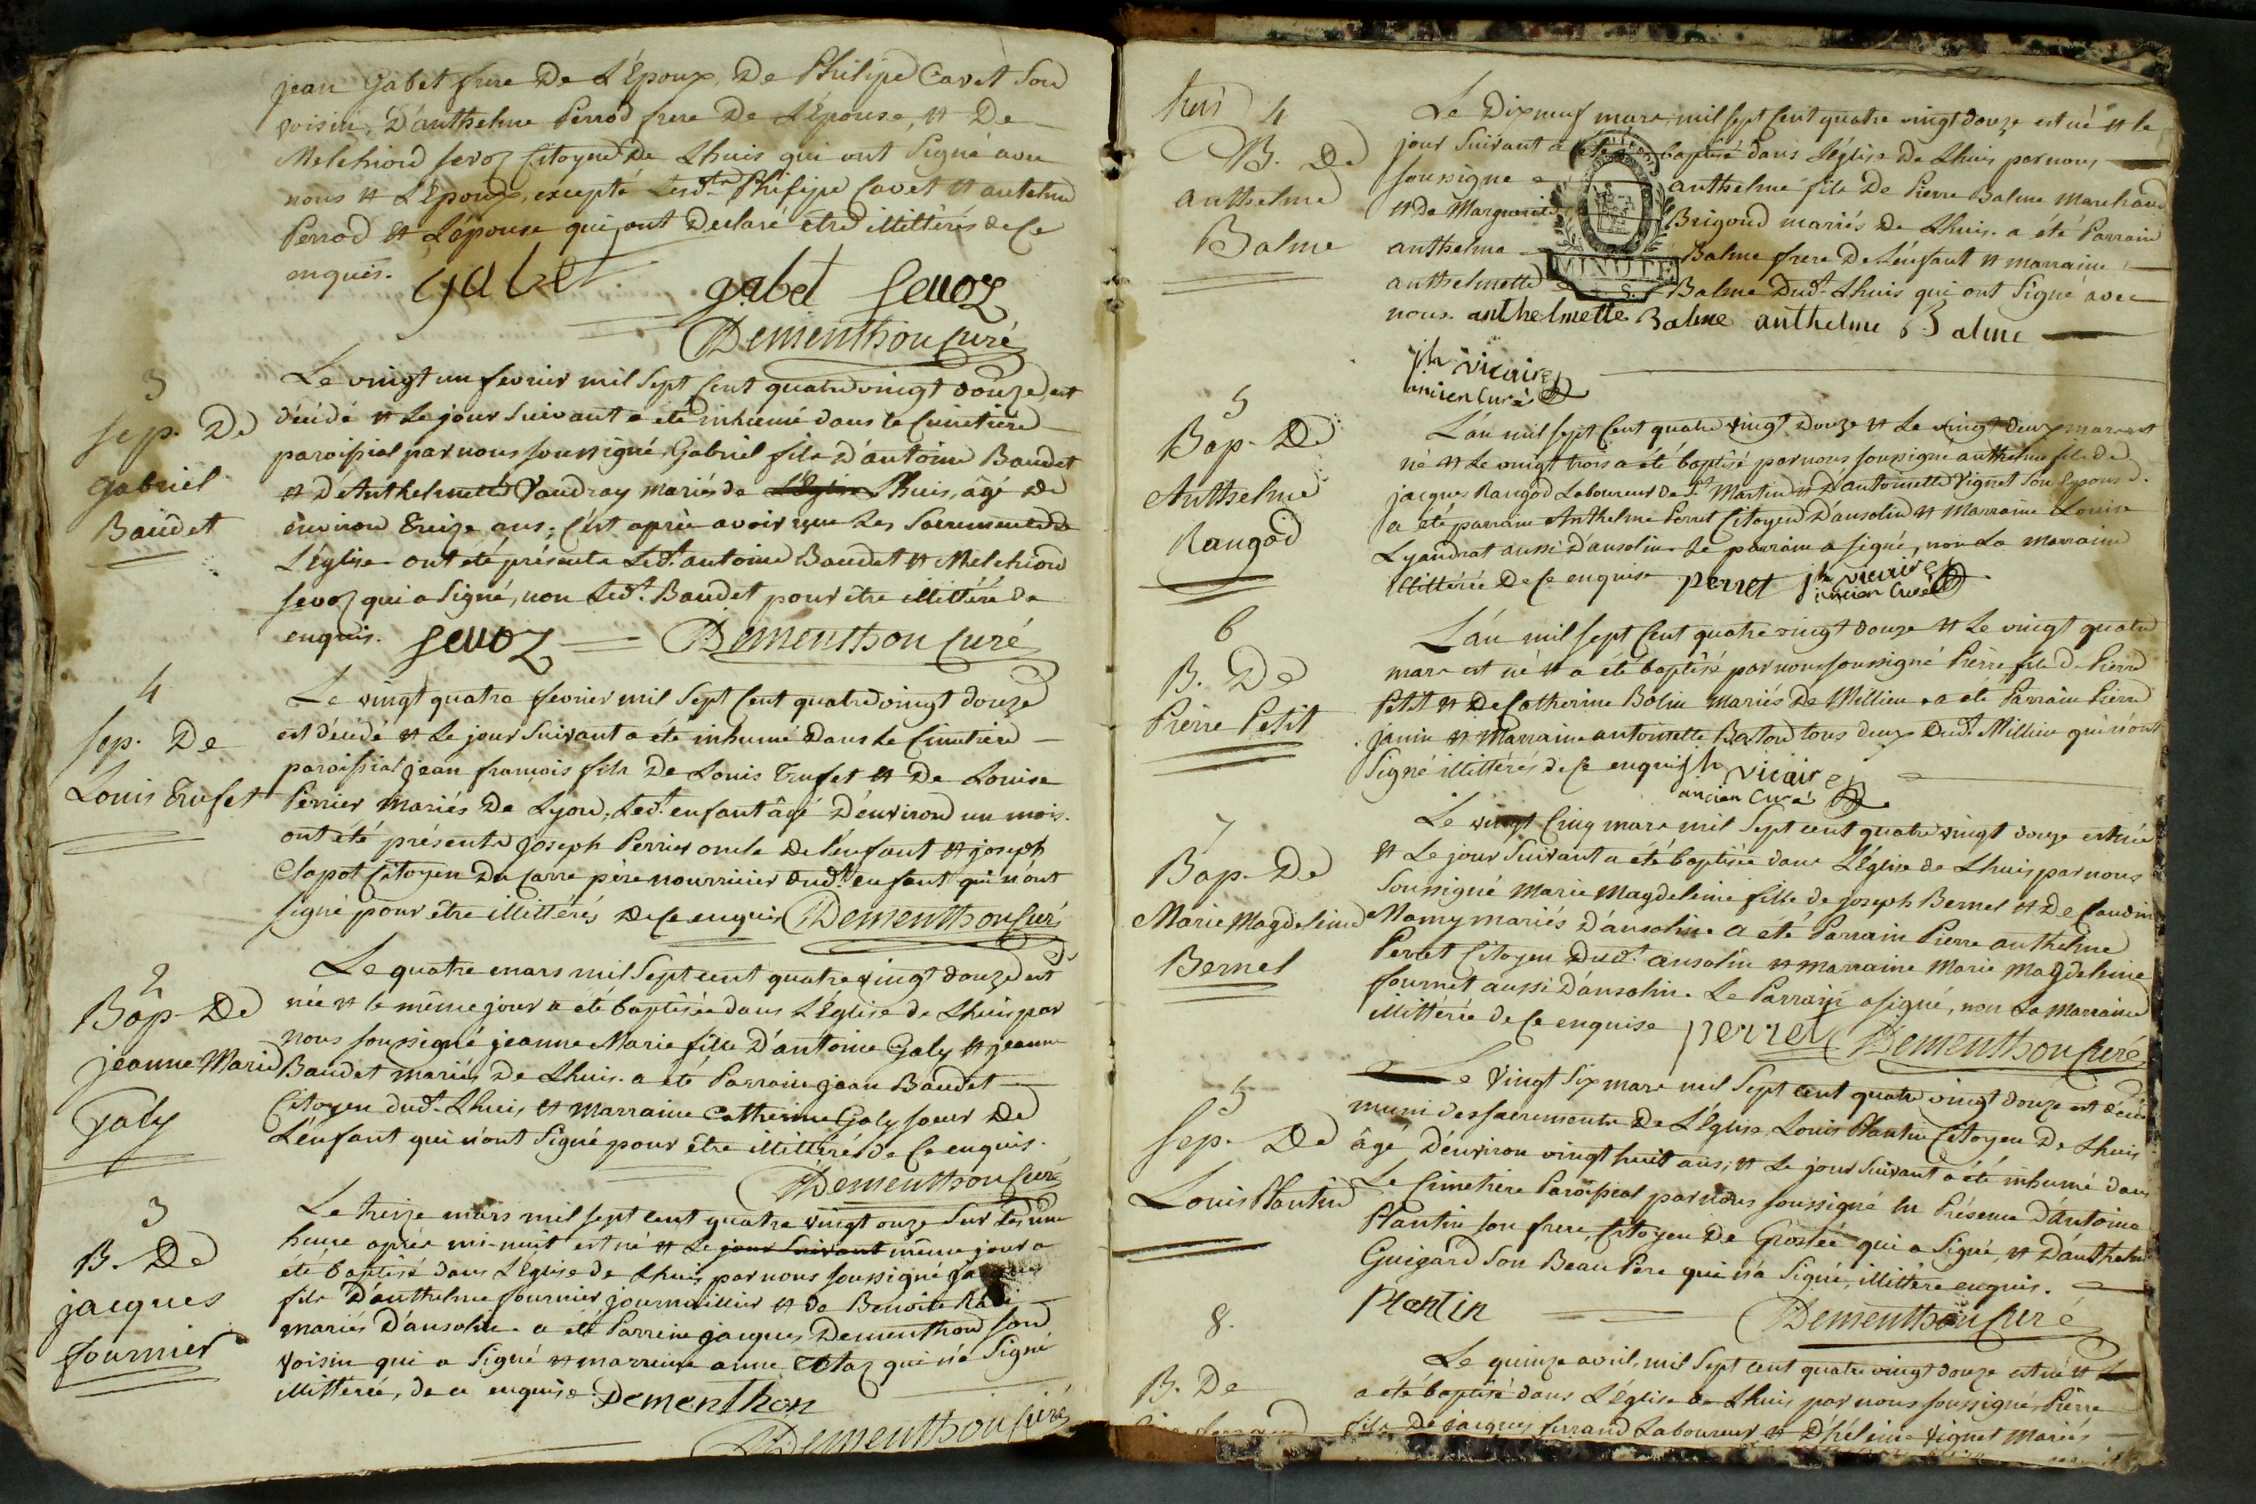 jean Gabet frere De L'Epoux, De Philipe Cavet Son
voisin, D'anthelme Perrod frere De L'épouse, et De
Melchiord Sevoz Citoyen De Lhuis qui ont Signé avec
nous et L'Epoux, excepté Lesdts Philipe Cavet et antelme
Perrod et L'épouse qui ont Declaré être illittérés de Ce
enquis. gabet gabet Sevoz
Dementhon Curé
3
Sep. De
gabriel
Baudet
Le vingt un fevrier mil Sept Cent quatre vingt douze est
décédé et Le jour Suivant a été inhumé dans le Cimetiere
paroissial par nous soussigné, Gabriel fils d'antoine Baudet
et D'Anthelmette Vaudray mariés de Lhuis, âgé De
environ treize ans; C'est après avoir reçu Les Sacrements de
L'église ont été présents Ledt. antoine Baudet et Melchiord
Sevoz qui a Signé, non Ledt. Baudet pour être illittéré de
enquis. Sevoz Dementhon Curé
4
Sep. De
Louis Trufet
Le vingt quatre fevrier mil Sept Cent quatre vingt douze
est décédé et Le jour Suivant a été inhumé Dans Le Cimetiere
paroissial jean francois fils De Louis Trufet et De Louise
Perrier Mariés De Lyon, Ledt. enfant âgé D'environ un mois.
ont été présents Joseph Perrier oncle De l'enfant et joseph
Clapot Citoyen Du Carre père nourricier dudt. enfant qui n'ont
signé pour être illittérés De Ce enquis Dementhon Curé
2
Bap. De
jeanne Marie
Galy
Le quatre mars mil Sept cent quatre vingt douze est
née et le même jour a été baptisée dans L'Eglise de Lhuis par
nous soussigné jeanne Marie fille D'antoine Galy et jeanne
Baudet mariés De Lhuis. a été Parrain jean Baudet
Citoyen dudt. Lhuis, et Marraine Catherine Galy soeur De
L'enfant qui n'ont Signé pour être illittérés de Ce enquis.
Dementhon Curé
3
B. De
jacques
fournier
Le treize mars mil sept cent quatre vingt onze Sur Les une
heure après mi-nuit est né et Le jour Suivant même jour a
été baptisé dans L'Eglise de Lhuis par nous soussigné
fils D'anthelme fournier journaillier et de Benoite
mariés D'ansolin. a été Parrein jacques Dementhon son
voisin qui a Signé et marreine anne qui n'a Signé
illitterée, de ce enquise. Dementhon
Dementhon Curé
4
B. De
anthelme
Balme
Le Dix neuf mars mil sept Cent quatre vingt douze est né et le
jour Suivant a été baptisé dans L'église de Lhuis par nous
soussigné anthelme fils De Pierre Balme Marchand
et De Marguerite Brigoud mariés De Lhuis. a été Parrain
anthelme Balme frere De L'enfant et marraine
anthelmette Balme Dudt. Lhuis qui ont Signé avec
MINUTE
nous. anthelmette Balme anthelme Balme
jh vicaire
ancien Curé
5
Bap. De
Anthelme
Rangod
L'an mil sept Cent quatre vingt Douze et Le vingt deux mars est
né et Le vingt trois a été baptisé par nous soussigné anthelme fils de
jacques Rangod Laboureur De St. Martin et D'antoinette Vignet Son Epouse.
a été parrain Anthelme Perret Citoyen D'ansolin et Marraine Louise
Lyaudrat aussi D'ansolin. Le parrain a signé, non La marraine
illittérée De Ce enquise perret jh vicaire
ancien Curé
6
B. De
Pierre Petit
L'an mil sept Cent quatre vingt douze et Le vingt quatre
mars est né et a été baptisé par nous soussigné Pierre fils De Pierre
Petit et De Catherine Bolin Mariés De Millieu. a été Parrain Pierre
janin et Marraine antoinette Baton tous deux Dudt. Millieu qui n'ont
Signé illittérés de Ce enquis jh vicaire
ancien Curé
7
Bap. De
Marie Magdeleine
Bernel
Le vingt Cinq mars mil Sept cent quatre vingt douze est née
et Le jour Suivant a été baptisée dans L'Eglise de Lhuis par nous
Soussigné Marie Magdeleine fille de joseph Bernel et De Claudine
Mamy mariés D'ansolin. a été Parrain Pierre anthelme
Perret Citoyen Dudt. ansolin et marraine Marie Magdeleine
fournet aussi D'ansolin. Le Parrain a signé, non La Marraine
illittérée de Ce enquise perret Dementhon Curé
5
Sep. De
Louis Plantin
Le Vingt Six mars mil Sept cent quatre vingt douze est décédé
muni des sacrements De L'église Louis Plantin Citoyen De Lhuis
âgé D'environ vingt huit ans, et Le jour Suivant a été inhumé dans
Le Cimetiere Paroissial par nous soussigné En Présence D'Antoine
Plantin son frere, Citoyen De Groslée qui a Signé, et D'anthelme
Guigard Son Beau Pere qui n'a Signé, illittéré enquis.
Plantin Dementhon Curé
8.
B. De
Le quinze avril, mil Sept cent quatre vingt douze est né et
a été baptisé dans L'église de Lhuis par nous soussigné Pierre
fils De jacques ferrand Laboureur et D'hélène Vignet Mariés